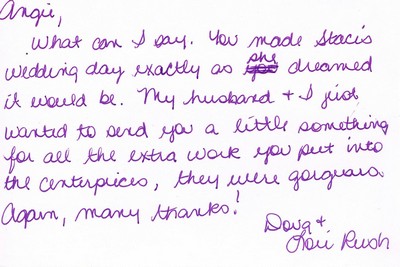 Angie,
What can I say. You made Stacis
wedding day exactly as she dreamed
it would be. My husband + I just
wanted to send you a little something
for all the extra work you put into
the centerpices, they were gorguous.
Again, many thanks!
Doug +
Lori Rush